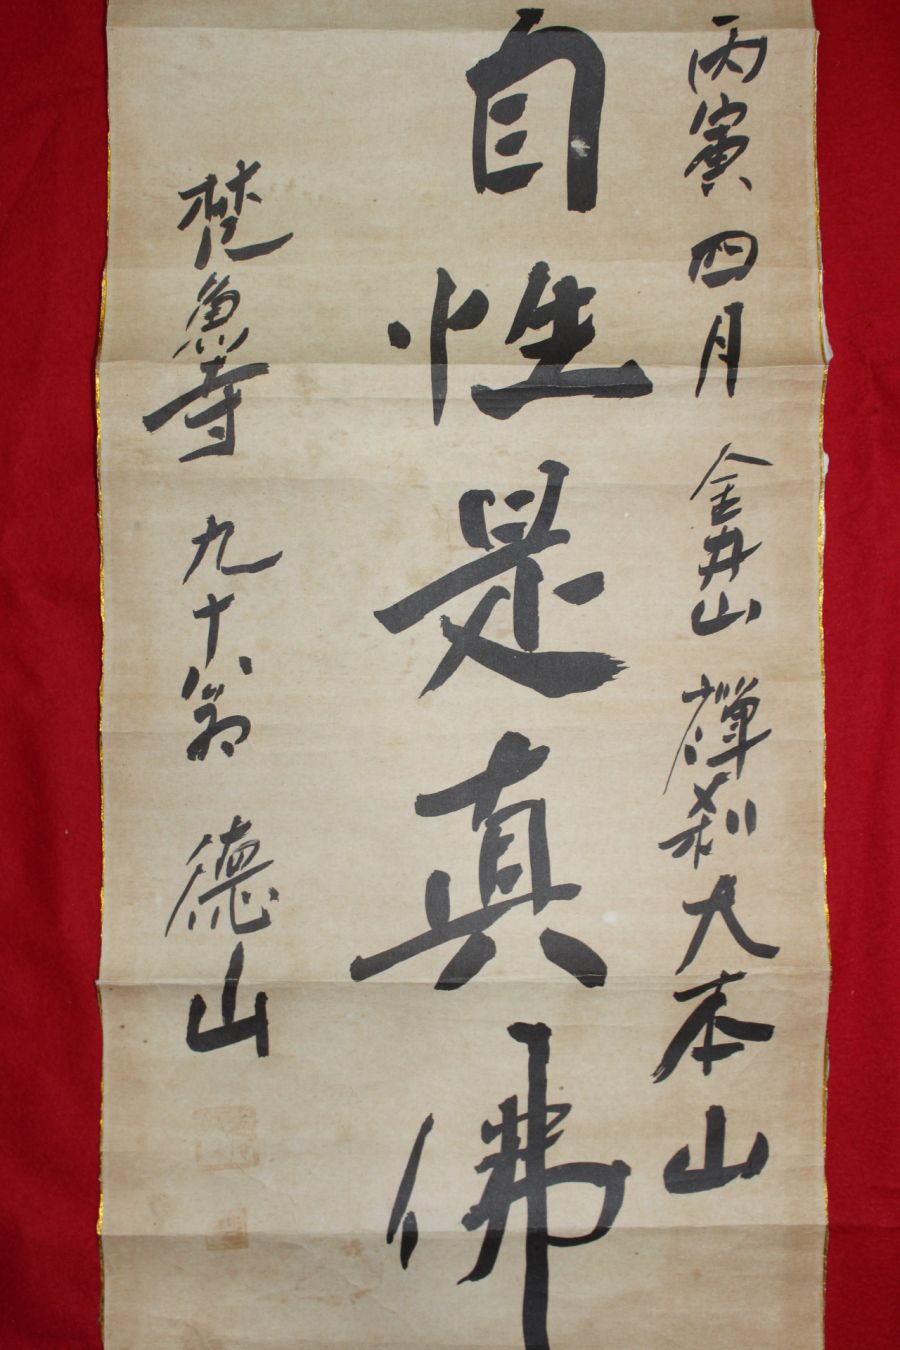 丙寅 四月 金井山 禪刹大本山
自性是真佛
梵魚寺 九十八翁 德山